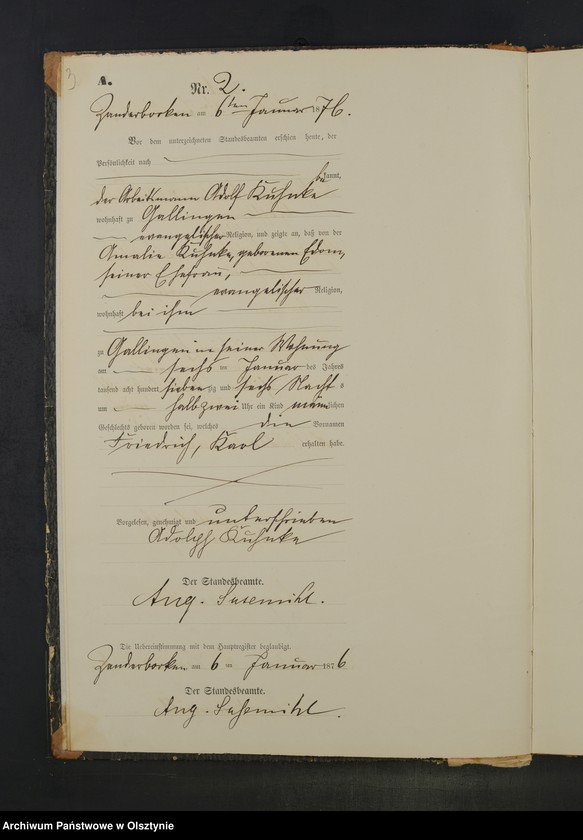 3
A.
Nr. 2.
Zanderborken am 6ten Januar 1876.
Vor dem unterzeichneten Standesbeamten erschien heute, der
Persönlichkeit nach
bekannt,
der Arbeitsmann Adolf Kuhnke
wohnhaft zu Gallingen
evangelischer Religion, und zeigte an, daß von der
Amalie Kuhnke, geborenen Edom,
seiner Ehefrau,
evangelischer Religion,
wohnhaft bei ihm
zu Gallingen in seiner Wohnung
am sechs ten Januar des Jahres
tausend acht hundert siebenzig und sechs Nacht s
um halb zwei Uhr ein Kind männlichen
Geschlechts geboren worden sei, welches die Vornamen
Friedrich, Karl erhalten habe.
Vorgelesen, genehmigt und unterschrieben
Adolph Kuhnke
Der Standesbeamte.
Aug. Susemihl.
Die Uebereinstimmung mit dem Hauptregister beglaubigt.
Zanderborken am 6 ten Januar 1876
Der Standesbeamte.
Aug. Susemihl.
Archiwum Państwowe w Olsztynie